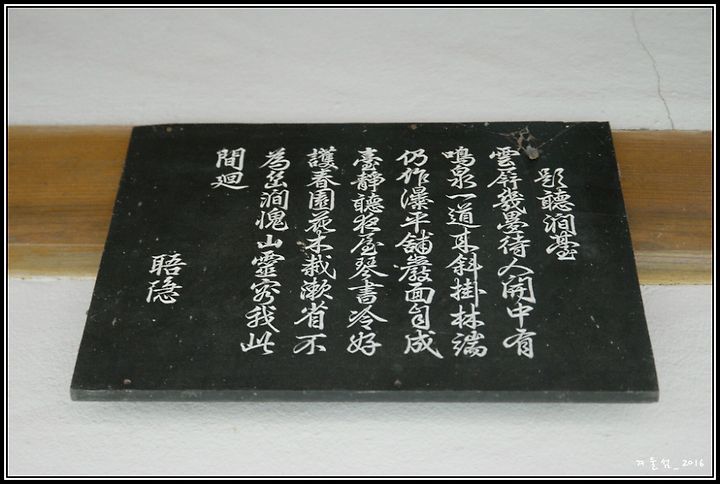 題聽澗臺
雲屛幾疊待人開中有
鳴泉一道来斜掛林端
仍作瀑平舖巖面自成
臺靜聽夜屋琴書冷好
護春園花木栽漱省不
為岳澗愧山靈容我此
間廻
晤隱
겨울섬_2016